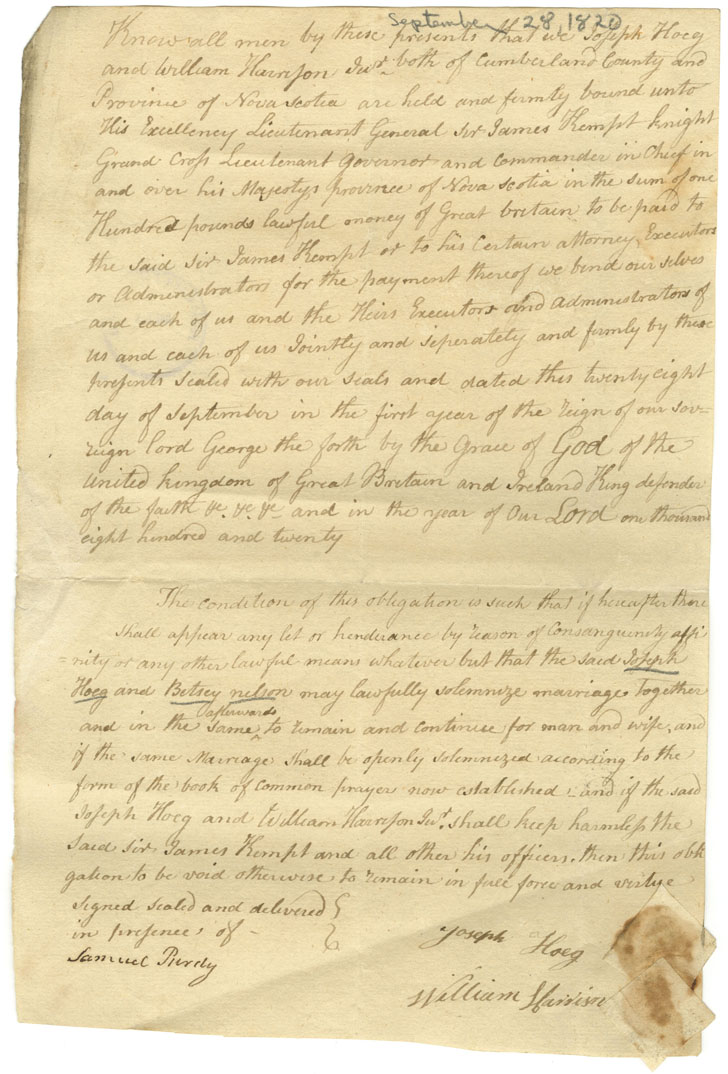 September 28, 1820
Know all men by these presents that we Joseph Hoeg
and William Harrison Junr. both of Cumberland County and
Province of Nova Scotia are held and firmly bound unto
His Excellency Lieutenant General Sir James Kempt knight
Grand Cross Lieutenant Governor and commander in Chief in
and over his Majestys province of Nova Scotia in the sum of one
Hundred pounds lawful money of Great britain to be paid to
the said Sir James Kempt or to his Certain attorney, Executors
or Administrators for the payment thereof we bind our selves
and each of us and the Heirs Executors and Administrators of
us and each of us Jointly and Seperately and firmly by these
presents Sealed with our seals and dated this twenty eight
day of September in the first year of the reign of our sov-
reign lord George the forth by the Grace of God of the
United kingdom of Great Britain and Ireland King defender
of the faith &c. &c. &c and in the year of Our Lord one thousand
eight hundred and twenty
The condition of this obligation is such that if hereafter there
Shall appear any let or henderance by reason of Consanguinity affi
=nity or any other lawful means whatever but that the said Joseph
Hoeg and Betsey nelson may lawfully solemnize marriage together
and in the same afterwards to remain and continue for man and wife, and
if the same Marriage shall be openly solemnized according to the
form of the book of common prayer now established - and if the said
Joseph Hoeg and William Harrison Junr. shall keep harmless the
Said Sir James Kempt and all other his officers. then this obli
gation to be void otherwise to remain in full force and virtue
Signed sealed and delivered
in presence of -
Samuel Purdy
Joseph Hoeg
William Harrison